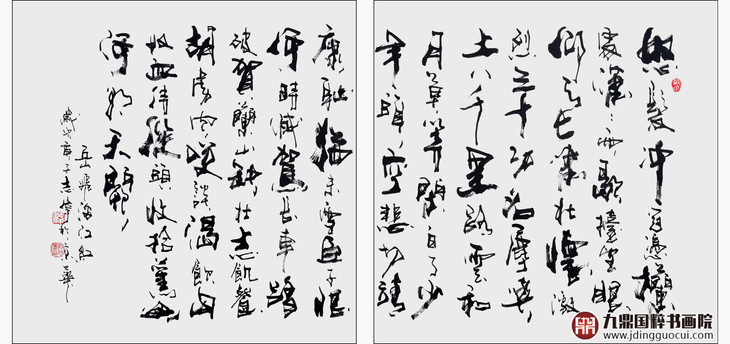 怒髮冲冠憑欄
處瀟〻雨歇擡望眼
仰天長嘯壯懷激
烈三十功名塵與
土八千里路雲和
月莫等閑白了少
年頭空悲切靖
康恥猶未雪臣子恨
何時滅駕長車踏
破賀蘭山缺壯志飢餐
胡虜肉笑談渴飲匈
奴血待從頭收拾舊山
河朝天闕
岳飛滿江紅
於京華
九鼎国粹书画院
www.jdingguocui.com